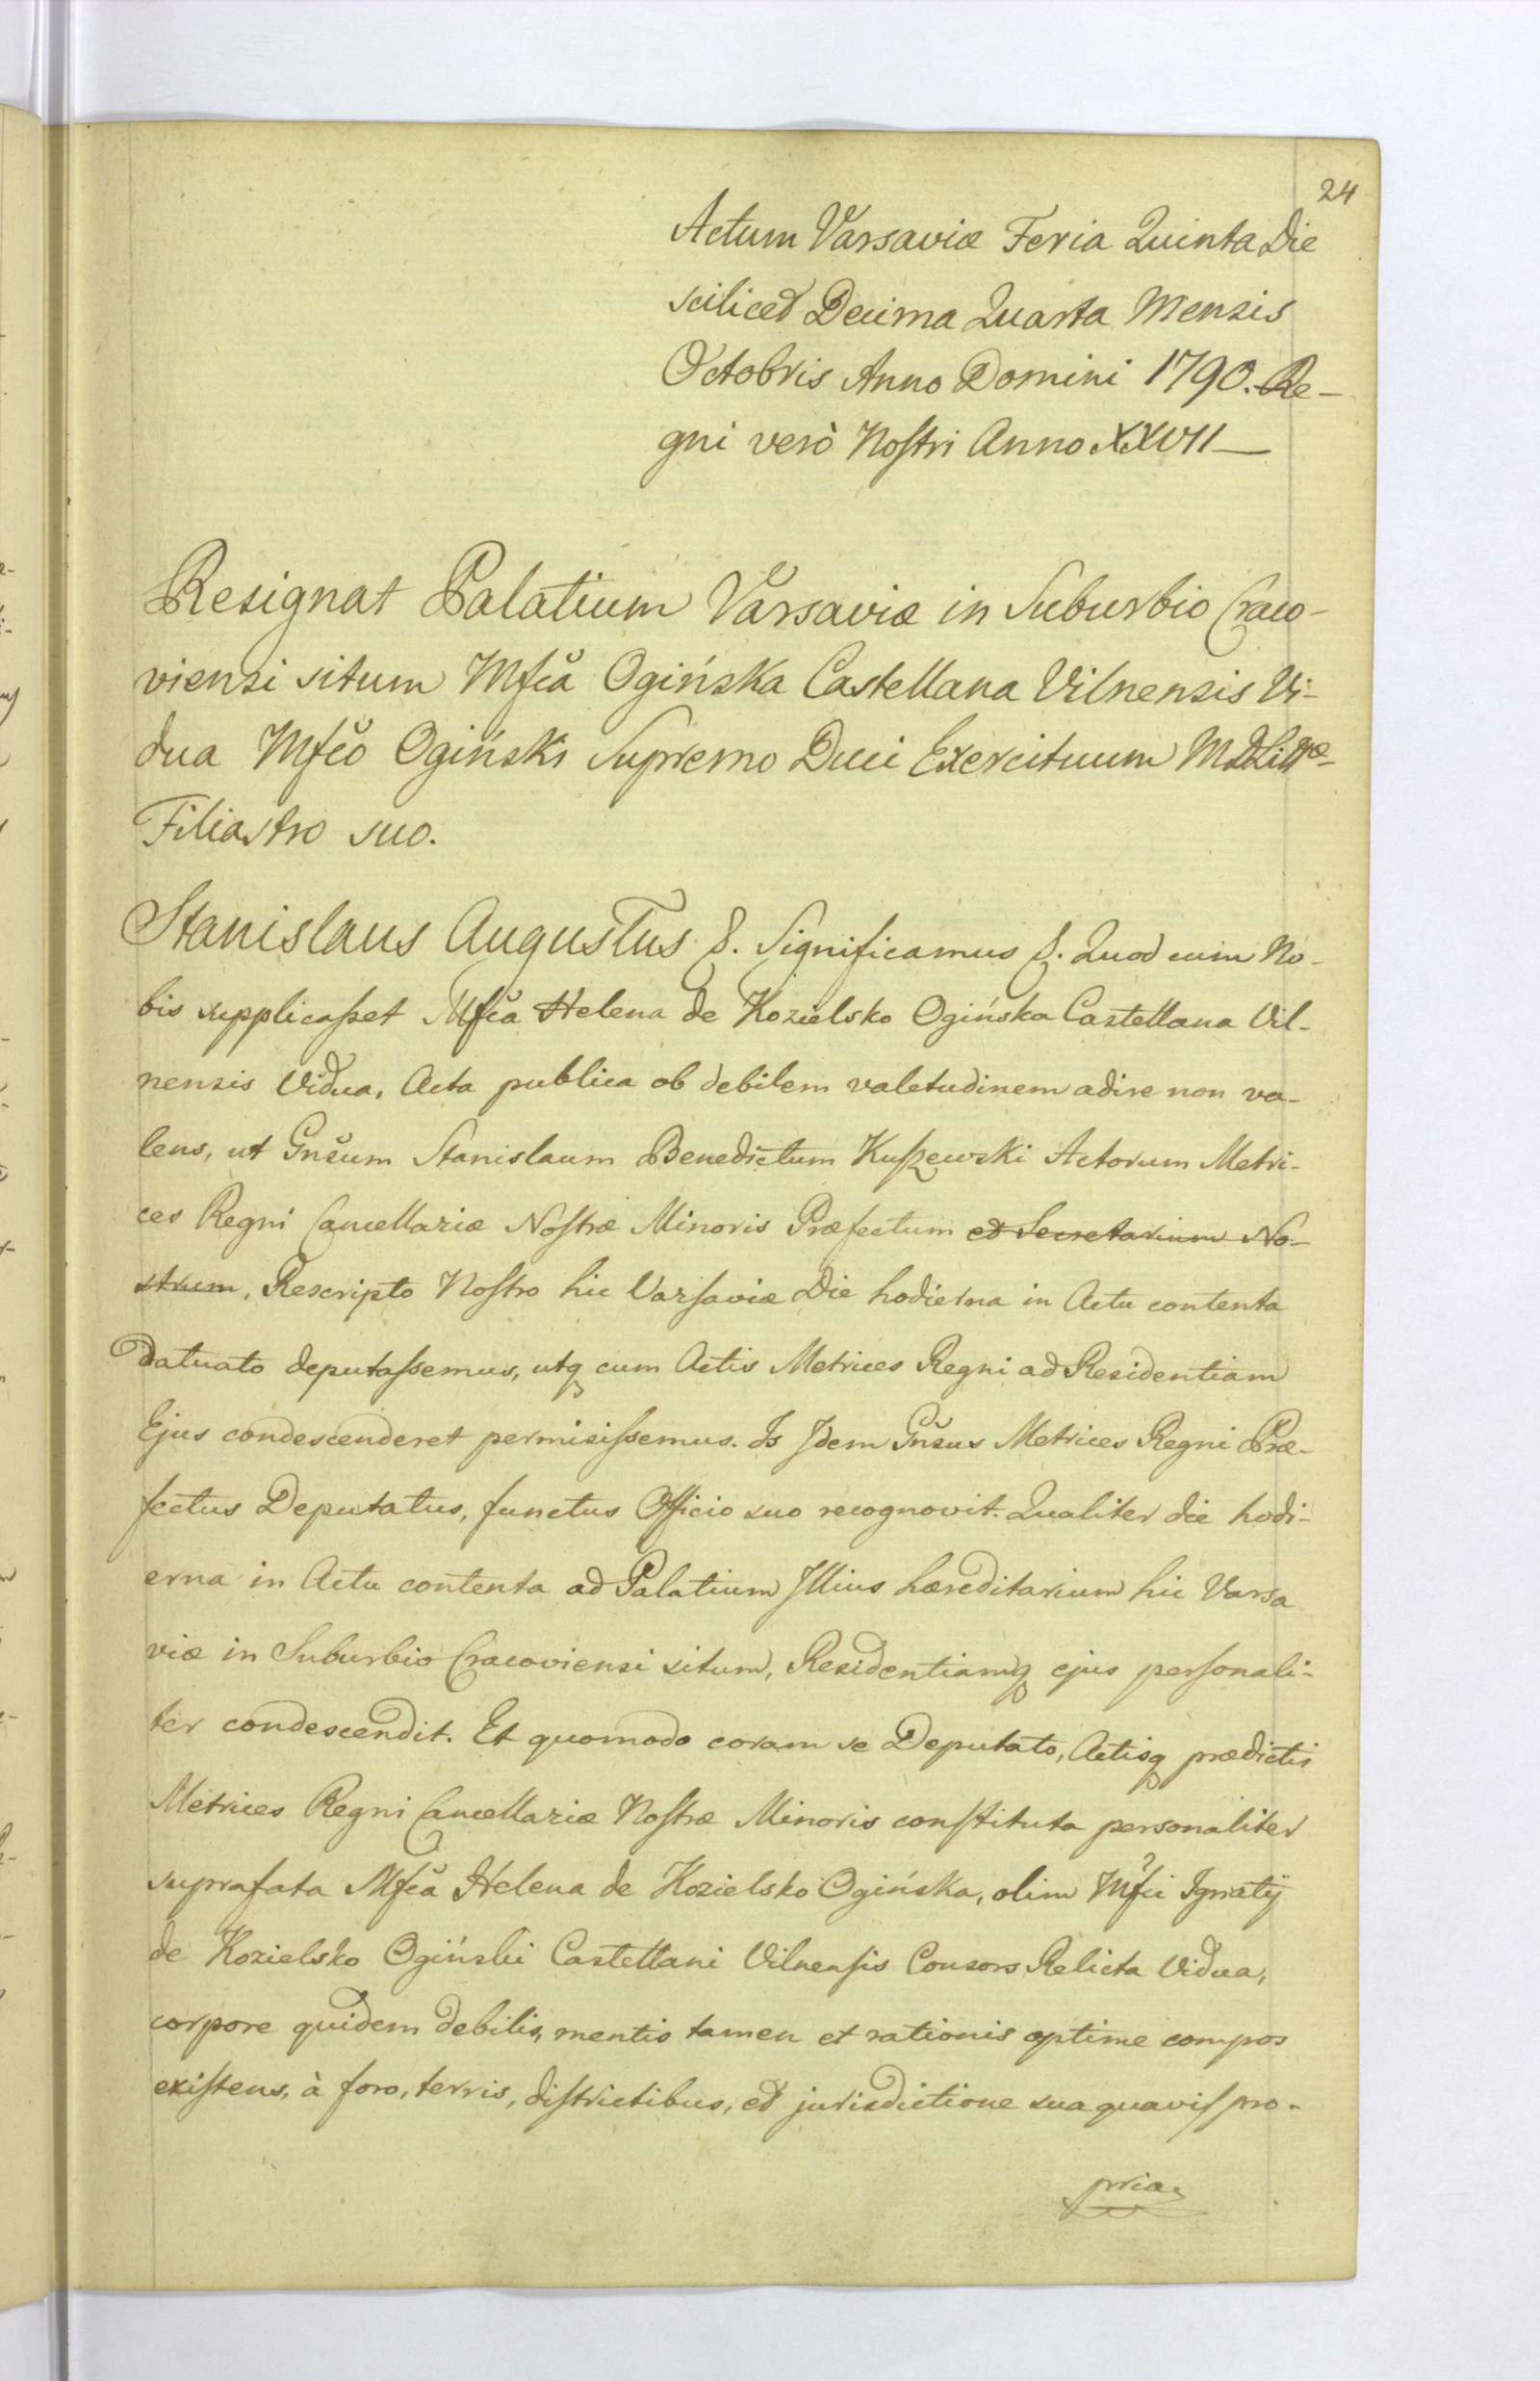 24
Actum Varsaviæ Feria Quinta Die
scilicet Decima Quarta Mensis
Octobris Anno Domini 1790. Re-
gni verò Noſtri Anno XXVII
Resignat Palatium Varsaviæ in Suburbio Craco-
viensi situm Mfca Ogińska Castellana Vilnensis Vi-
dua Mfco Ogiński Supremo Duci Exercituum MDLittæ
Filiastro suo.
Stanislaus Augustus &. Significamus &. Quod cum No-
bis supplicaſset Mfca Helena de Kozielsko Ogińska Castellana Vil-
nensis Vidua, Acta publica ob debilem valetudinem adire non va-
lens, ut Gnsum Stanislaum Benedictum Kuſzewski Actorum Metri-
ces Regni Cancellariæ Noſtræ Minoris Præfectum et Secretarium No-
strum, Rescripto Noſtro hic Varſaviæ Die hodierna in Actu contenta
datuato deputaſsemus, utq cum Actis Metrices Regni ad Residentiam
Ejus condescenderet permisiſsemus. Is Idem Gnsus Metrices Regni Præ-
fectus Deputatus, functus Officio suo recognovit. Qualiter die hodi-
erna in Actu contenta ad Palatium Illius hæreditarium hic Varsa
viæ in Suburbio Cracoviensi situm, Residentiamq ejus perſonali-
ter condescendit. Et quomodo coram se Deputato, Actisq prædictis
Metrices Regni Cancellariæ Noſtræ Minoris conſtituta personaliter
suprafata Mfca Helena de Kozielsko Ogińska, olim Mfci Ignatij
de Kozielsko Ogiński Castellani Vilnenſis Consors Relicta Vidua,
corpore quidem debilis, mentis tamen et rationis optime compos
exiſtens, à foro, terris, diſtrictibus, et jurisdictione sua quaviſ pro-
pria